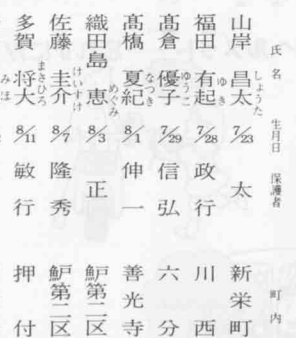 氏名 生月日 保護者 町内
山岸昌太 しょうた 7/23 太 新栄町
福田有起 ゆき 7/28 政行 川西
髙倉優子 ゆうこ 7/29 信弘 六分
髙橋夏紀 なつき 8/1 伸一 善光寺
織田島恵 めぐみ 8/3 正 鮖戸第二区
佐藤圭介 けいすけ 8/7 隆秀 鮖戸第二区
多賀将大 まさひろ 8/11 敏行 押付
みほ